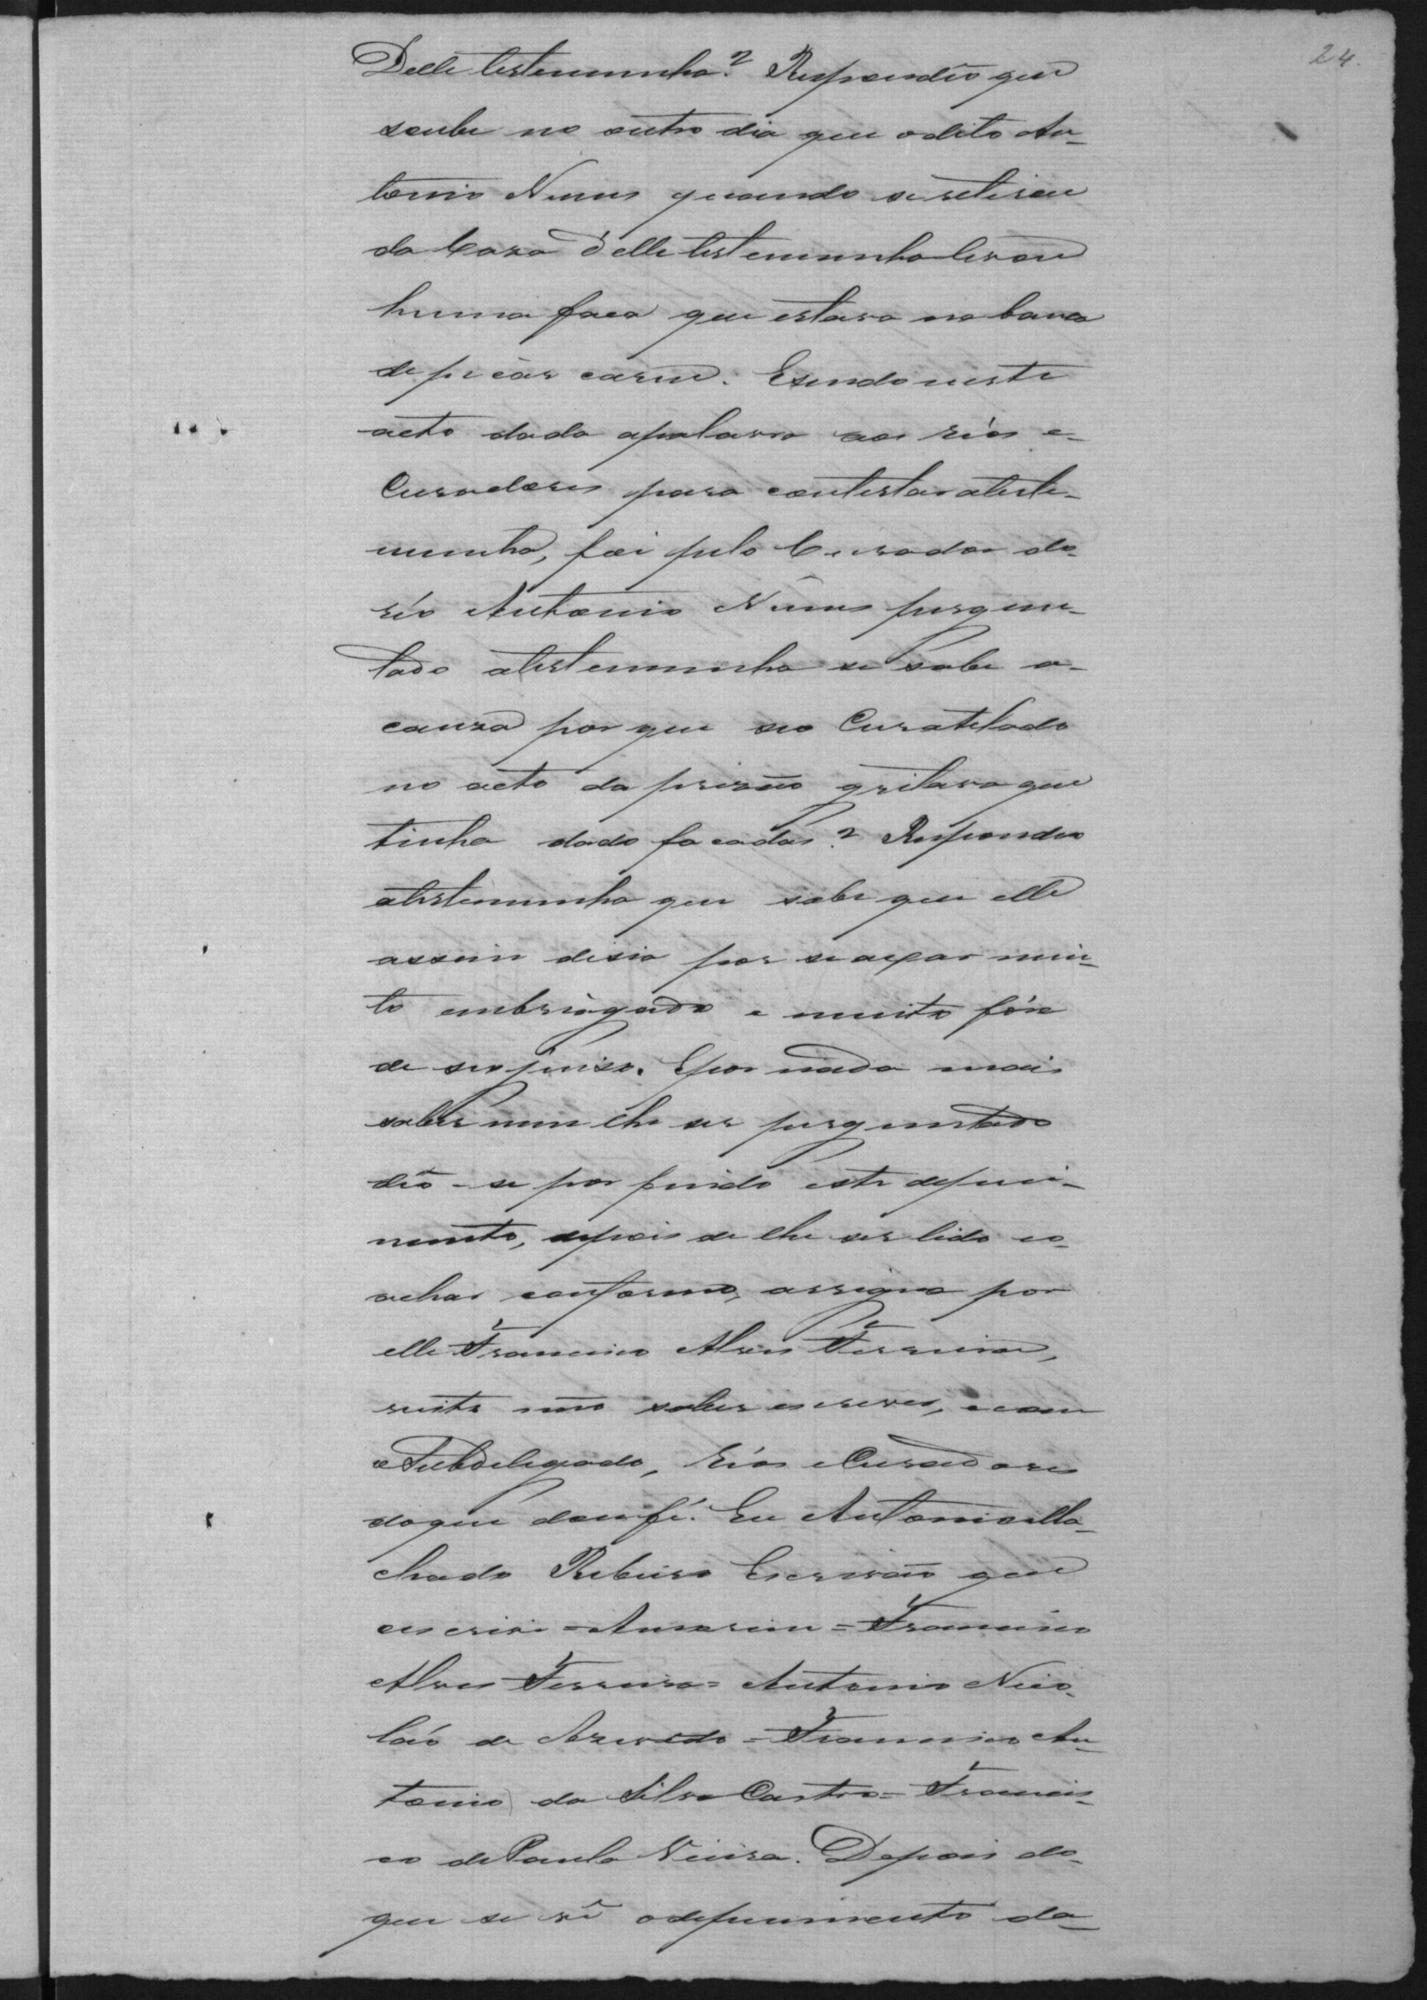 24.
Delle testemunha? Respondêo que
soube no outro dia que o dito An-
tonio Nunes quando se retirou
da Caza delle testemunha levou
huma faca que estava na banca
de picar carne. E sendo neste
acto dada apalavra aos réos e
Curadores para contestar a teste-
munha, foi pelo Curador do
réo Antonio Nunes pergun-
tado a testemunha se sabe a
cauza por que seo Curatelado
no acto da prizão gritava que
tinha dado facadas? Respondeo
a testemunha que sabe que elle
assim disia por se axar mui-
to embriagado e muito fóra
de seo juiso. E por nada mais
saber nem lhe ser perguntado
dêo-se por findo este depoi-
mento, depois de lhe ser lido e o
achar conforme, assigna por
elle Francisco Alves Ferreira,
visto não saber escrever, e com
o Subdelegado, Réos e Curadores
do que dou fé. Eu Antonio Ma-
chado Ribeiro Escrivão que
escrivi = = Francisco
Alves Ferreira = Antonio Nico-
láo de Azevedo = Francisco An-
tonio da Silva Castro = Francis-
co de Paula Vieira. Depois do
que se vê o depuimento da